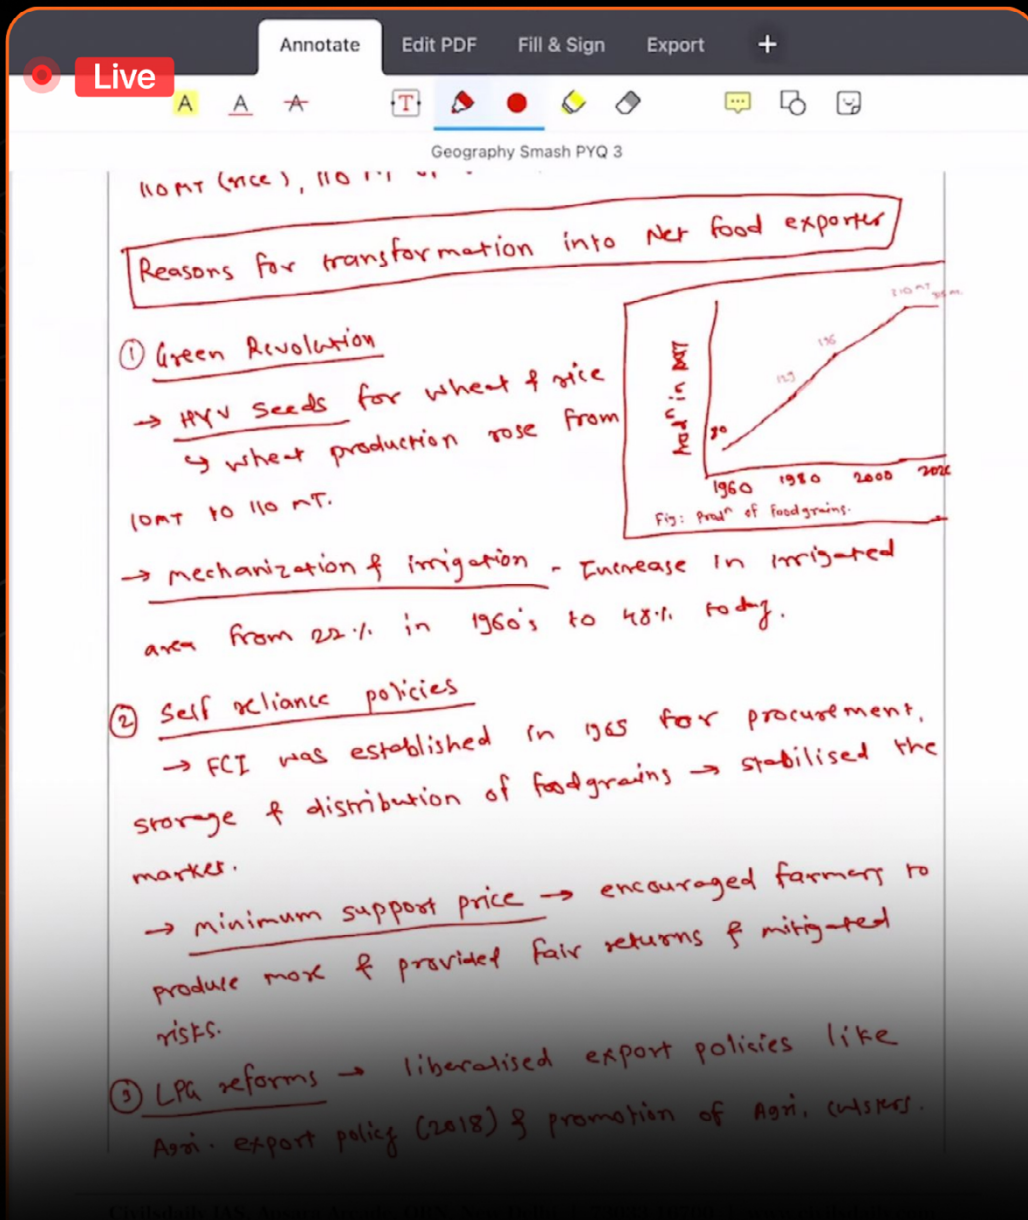 Annotate Edit PDF Fill & Sign Export +
Live
A A A T
Geography Smash PYQ 3
110 MT (rice), 110 MT
Reasons for transformation into Net food exporter
① Green Revolution
→ HYV Seeds for wheat & rice
↳ wheat production rose from
10MT to 110 MT.
Prodn in MT
80
129
196
310 MT
1960 1980 2000 2020
Fig: Prodn of foodgrains.
→ mechanization & irrigation - Increase in irrigated
area from 22% in 1960's to 48% today.
② Self reliance policies
→ FCI was established in 1965 for procurement,
storage & distribution of foodgrains → stabilised the
market.
→ minimum support price → encouraged farmers to
produce more & provided fair returns & mitigated
risks.
③ LPG reforms → liberalised export policies like
Agri. export policy (2018) & promotion of Agri. clusters.